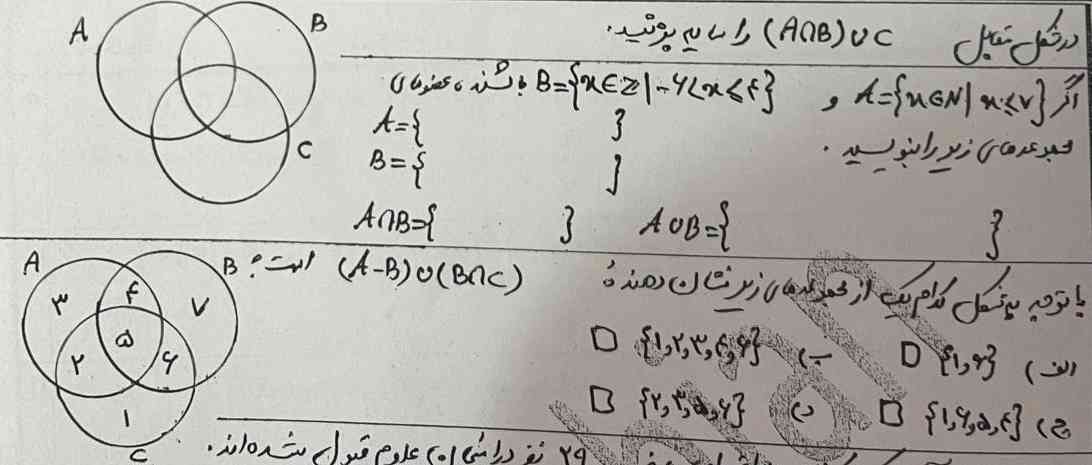 در شکل مقابل (A∩B)∪C را سایه بزنید.
A B C
اگر A={x∈N| x≤۷} و B={x∈Z|-۶<x≤۴} باشند، عضوهای
مجموعه‌های زیر را بنویسید.
A={ }
B={ }
A∩B={ } A∪B={ }
با توجه به شکل کدام یک از مجموعه‌های زیر نشان دهندهٔ (A-B)∪(B∩C) است؟
A B C
۳ ۴ ۷ ۵ ۲ ۶ ۱
الف) {۱,۶} ب) {۱,۲,۳,۴,۶}
ج) {۱,۶,۵,۴} د) {۲,۳,۵,۶}
۲۹ نفر در امتحان علوم قبول شده‌اند.